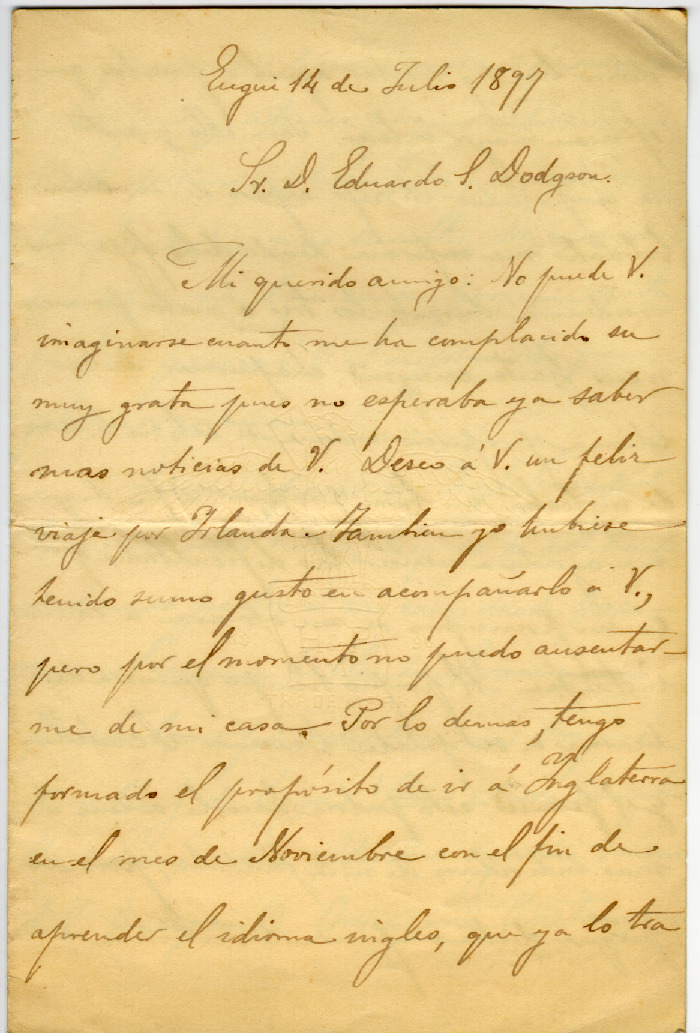 Eugui 14 de Julio 1897
Sr. D. Eduardo S. Dodgson.
Mi querido amigo: No puede V.
imaginarse cuanto me ha complacido su
muy grata pues no esperaba ya saber
mas noticias de V. Deseo á V. un feliz
viaje por Yrlanda. Tambien yo hubiese
tenido sumo gusto en acompañarlo á V.,
pero por el momento no puedo ausentar-
me de mi casa. Por lo demas, tengo
formado el propósito de ir á Ynglaterra
en el mes de Noviembre con el fin de
aprender el idioma ingles, que ya lo tra